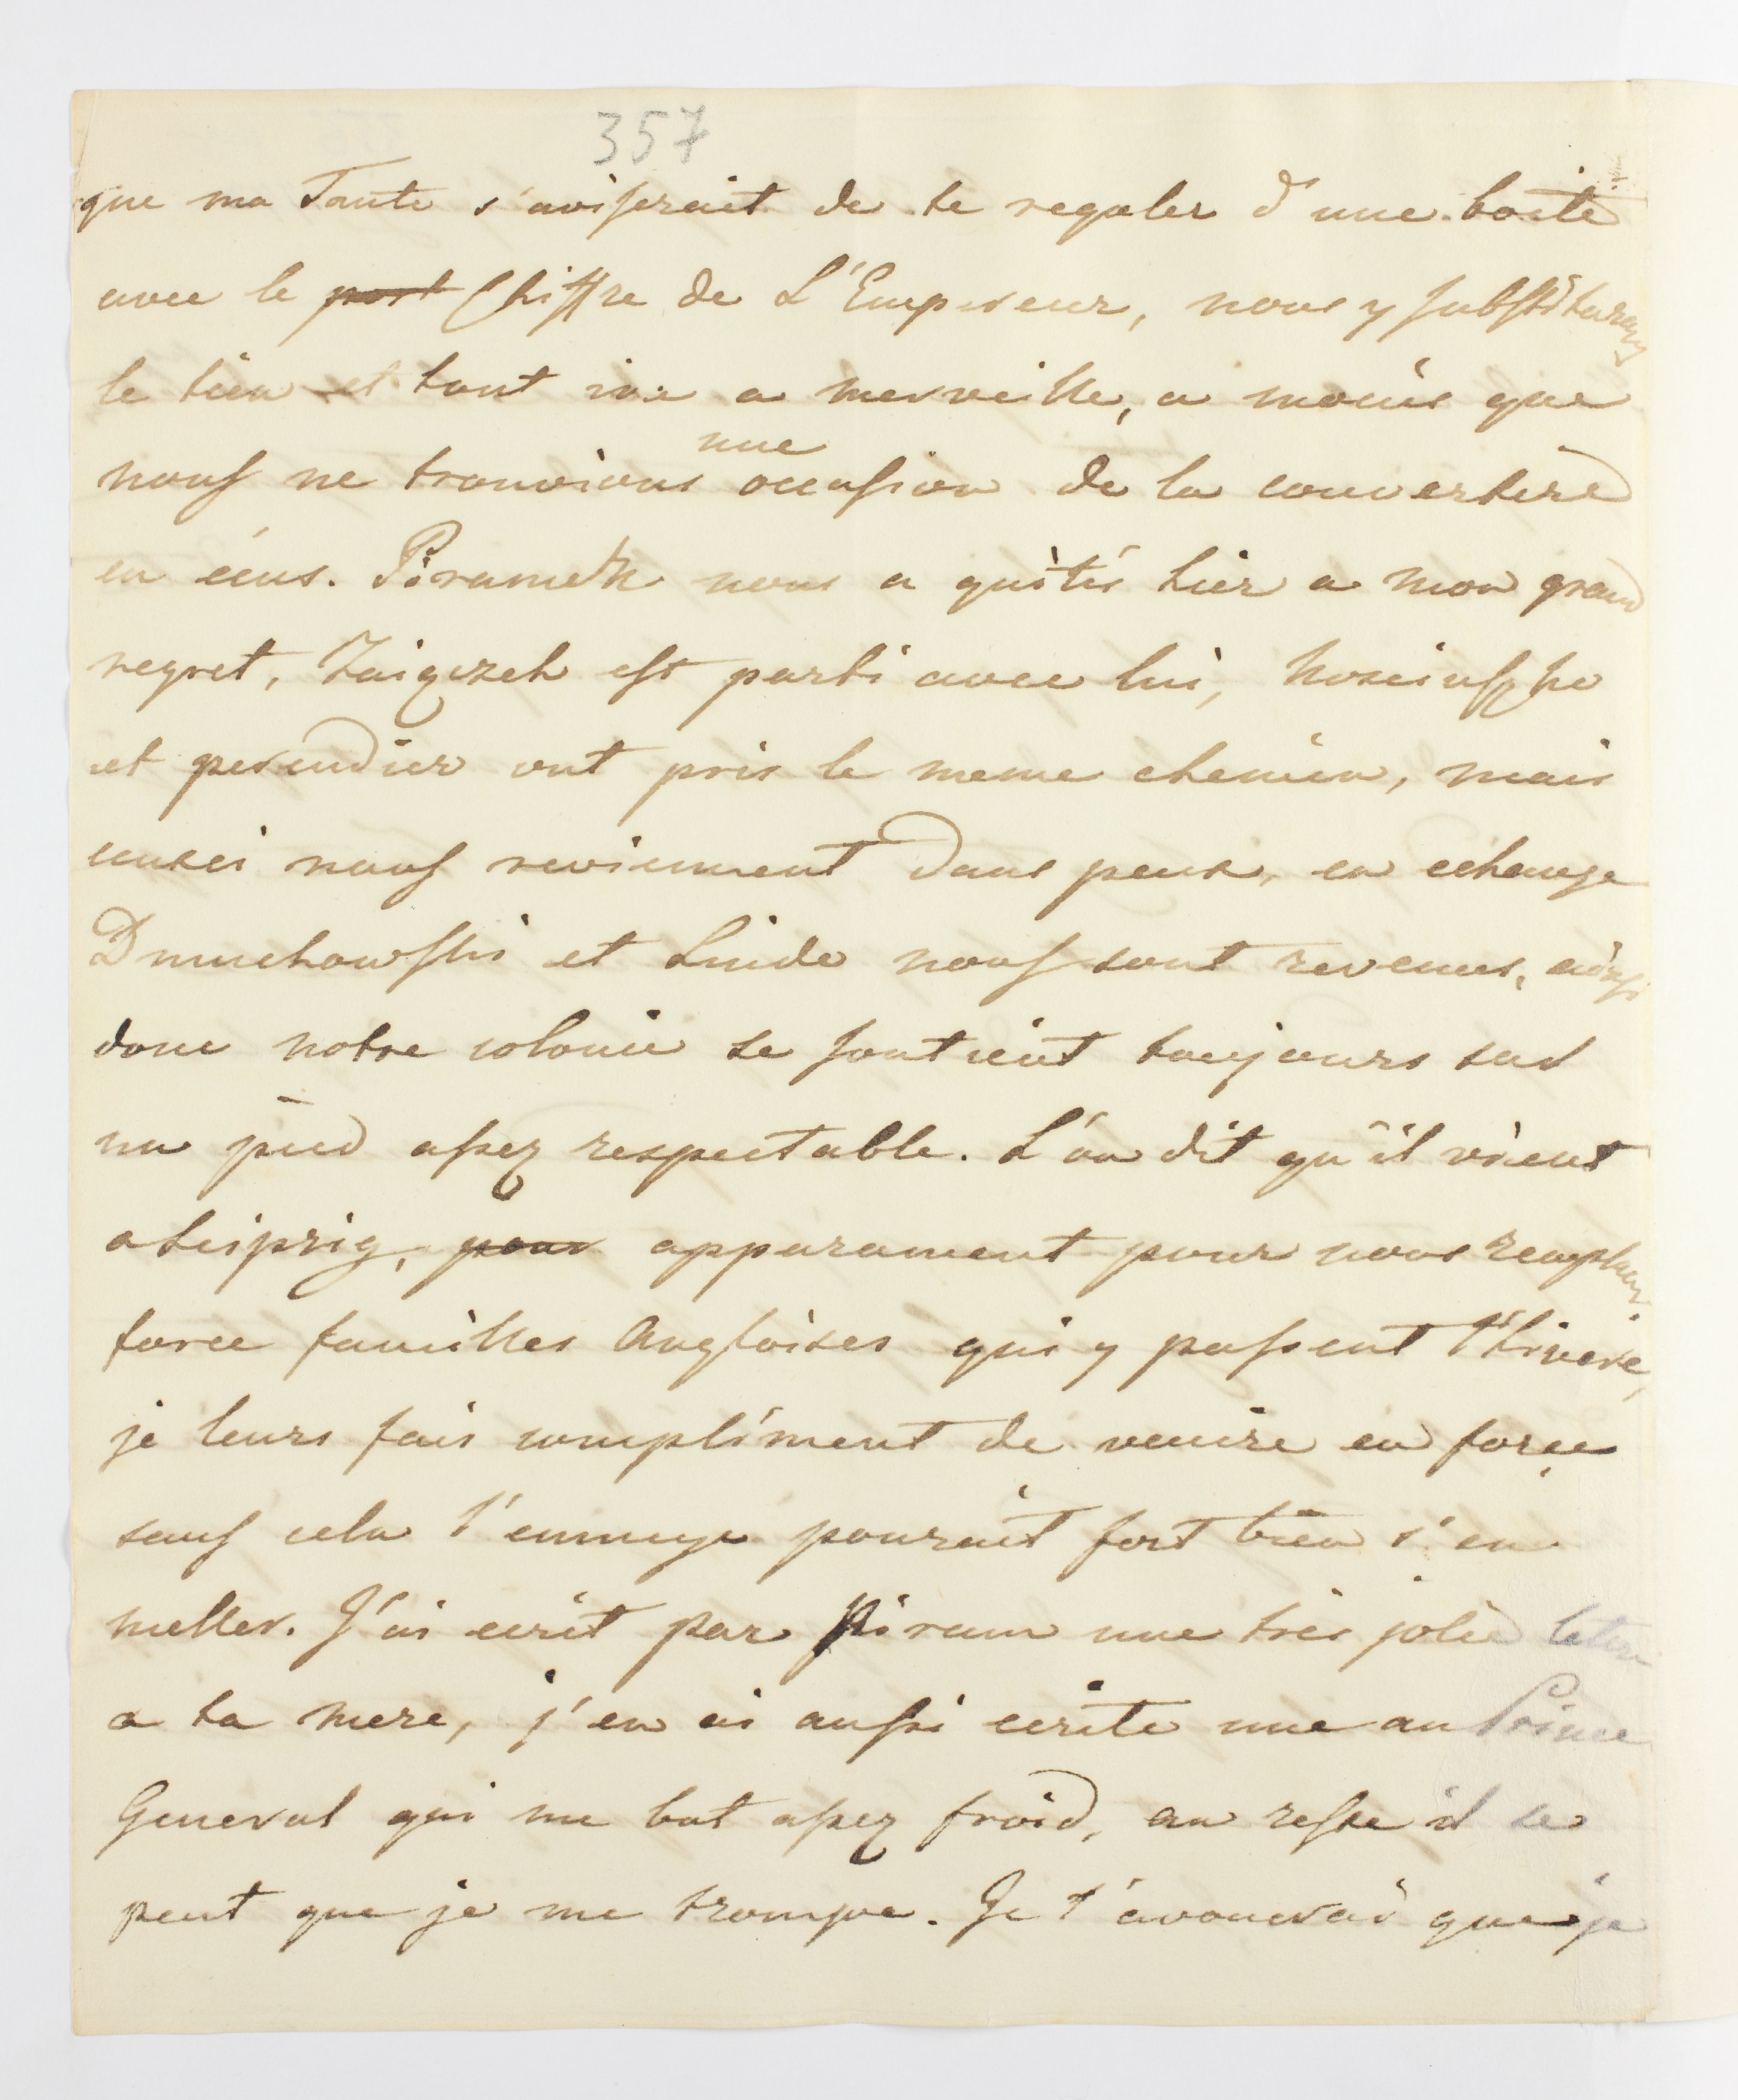 357
que ma Tante s'aviserait de te regaler d'une boite
avec le port Chiffre de L'Empereur, nous y substiturons
le tien et tout ira a merveille, a moins que
une
nous ne trouvions occasion de la convertire
en écus. Piramek nous a quités hier a mon grand
regret, Zaigczek est parti avec lui,
et gerendier ont pris le meme chemin, mais
ceusci nous reviennent dans peux, en echange
Dmuchowski et Linde nous sont revenus, ainsi
donc notre colonie se soutient toujours sur
un pied assez respectable. L'on dit qu'il vient
a Leipzig, pour apparament pour nous remplacer,
force familles Angloises qui y passent l'hivere,
je leurs fais compliment de venire en force
sans cela l'ennuye pourait fort bien s'en
meller. J'ai ecrit par Piram une tres jolie letre
a ta mere, j'en ai aussi ecrite une au Prince
General qui me bat assez froid, au reste il se
peut que je me trompe. Je t'avouerai que je